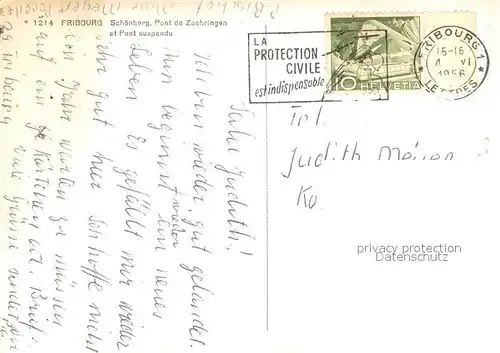 * 1214 FRIBOURG Schönberg, Pont de Zaehringen
et Pont suspendu
LA
PROTECTION
CIVILE
est indispensable
10 HELVETIA
FRIBOURG 1
15-16
VI
1956
LETTRES
Frl.
Judith
privacy protection
Datenschutz
Salü Judith!
Ich bin wieder gut gelandet.
Nun beginnt wieder ein neues
Leben. Es gefällt mir wieder
sehr gut hier. Ich hoffe nicht
ein Jahr warten zu müssen
auf ein Kärtchen od. Brief
aus Fribourg viele Grüsse sendet